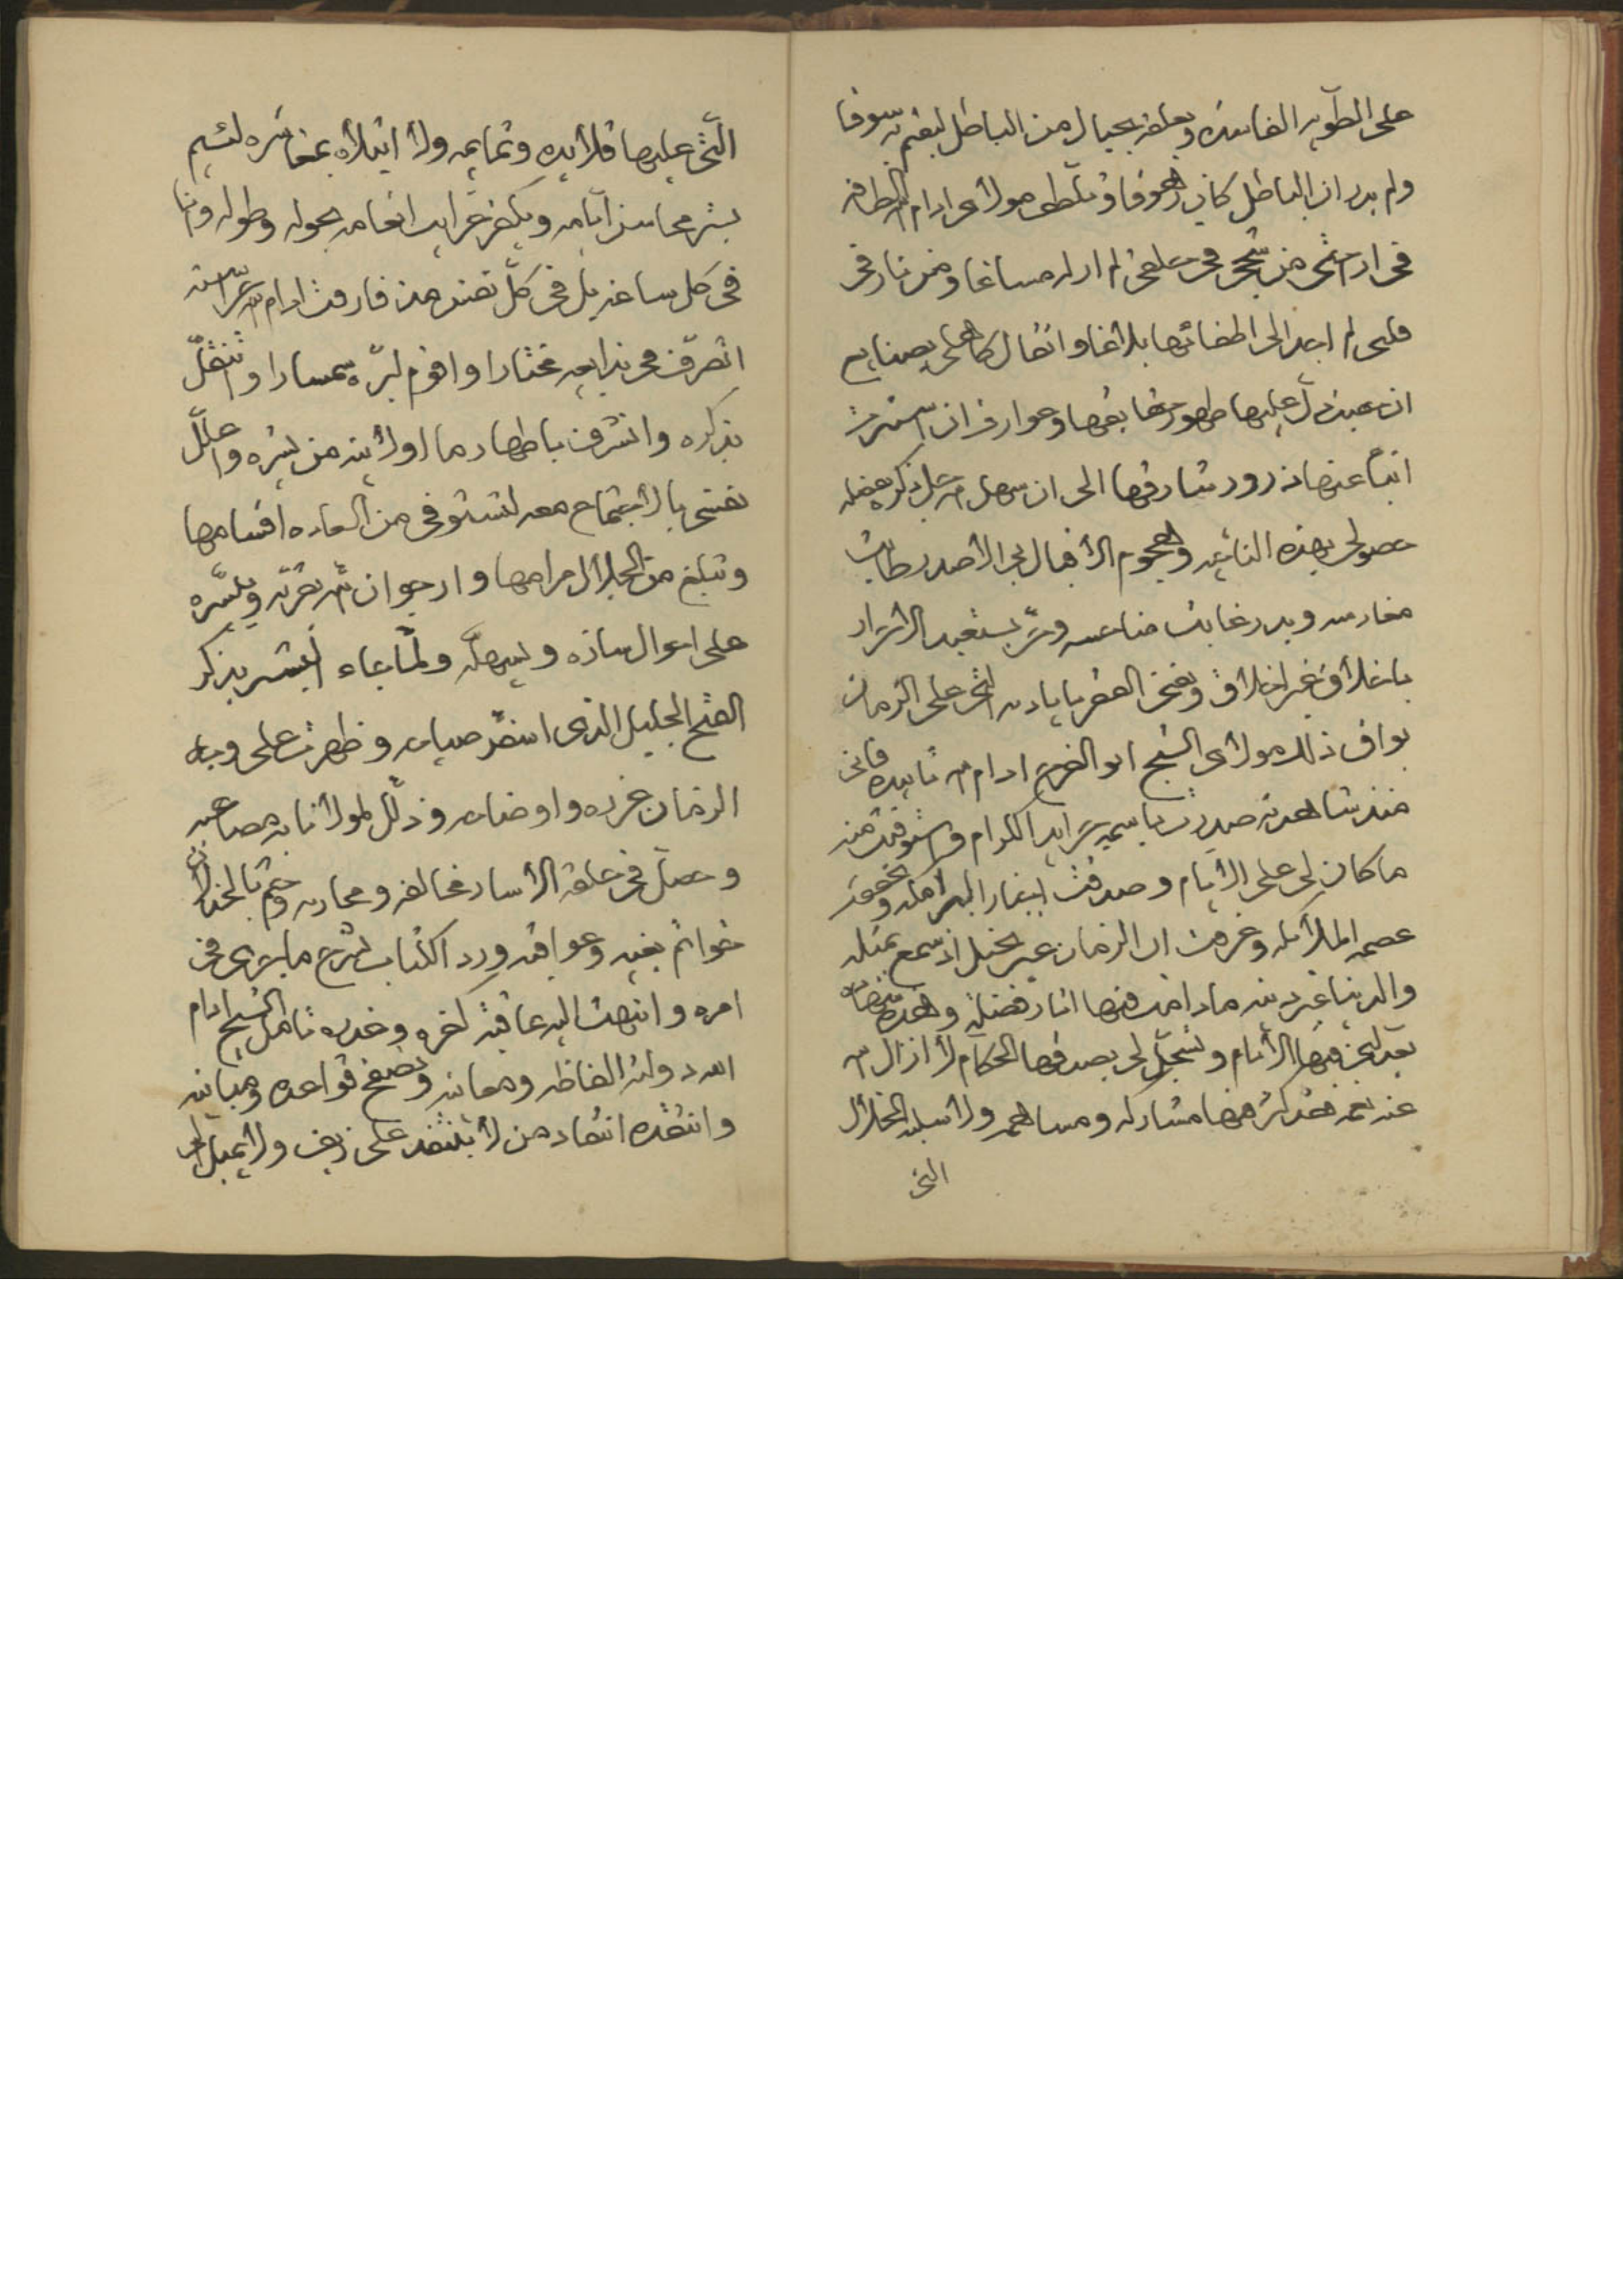 على الطويه الفاسده وتعلقه بحبال من الباطل ليقيم به سوقا
ولم يدر ان الباطل كان زهوقا وتلطف مولاى ادام الله
فى ار من شجى فى حلقى لم ار له مساغا ومن نار فى
قلبى لم اجد الى اطفائها بلاغا واثقال كاهلى بصنايع
ان عليها ظهور حقايقها وعوارف ان استترت
انبا عنها ذرور شارقها الى ان سهل الله جل ذكره بفضله
حصولى بهذه الناحيه وهجوم الاقبال بى الا صدر طابت
مغارسه وبدر غابت مناحسه وحر يستعبد الاحرار
باخلاق غير اخلاق ويفخر العصر باياديه التى على الزمان
بواق ذلك مولاى الشيخ ابو الفرج ادام الله تاييده فانى
منذ شاهدته صدقت باسمه جرايد الكرام واستوفيت منه
ما كان لى على الايام وصدقت اخبار البرامكه وتحققت
عصمه الملائكه وعرفت ان الزمان غير بخيل اذ سمح بمثله
والدنيا غير دنيه ما دامت فيها اثار فضله وهذه شهاده
يعدلنى فيها الانام ويسجل لى بصدقها الحكام لا ازال الله
عنه نعمه هذكرم منها مشاركه ومساهمه ولا سلبه الخلال
التى
التى عليها قلايده وتمايمه ولا ابتلاه بمعاشره لئيم
يستر محاسن ايامه ويكفر غرايب انعامه بحوله وطوله وانا
فى كل ساعه بل فى كل نفس منذ فارقت ادام الله حراسته
اتصرف فى بدايعه مختارا واقوم لبره سمسارا واتنقل
بذكره واتشرف باظهار ما اولانيه من بشره واعلل
نفسى بالاجتماع معه لتستوفى من السعاده اقسامها
وتبلغ من الجلال مرامها وارجو ان الله يقربه وييسره
على احوال ساره ويسهله ولما جاء البشير بذكر
الفتح الجليل الذى اسفر صباحه وظهرت على وجه
الزمان غرره واوضاحه وذلل لمولانا به مصاعبه
وحصل فى حلقة الاسار مخالفه ومحاربه وختم بالخذلان
خواتم بغيه وعواقبه ورد الكتاب بشرح ما جرى فى
امره وانتهت اليه عاقبة كفره وغدره تامل الشيخ ادام
الله دولته الفاظه ومعانيه وتصفح قواعده ومبانيه
وانتقده انتقاد من لا يلتفت على زيف ولا يميل الى